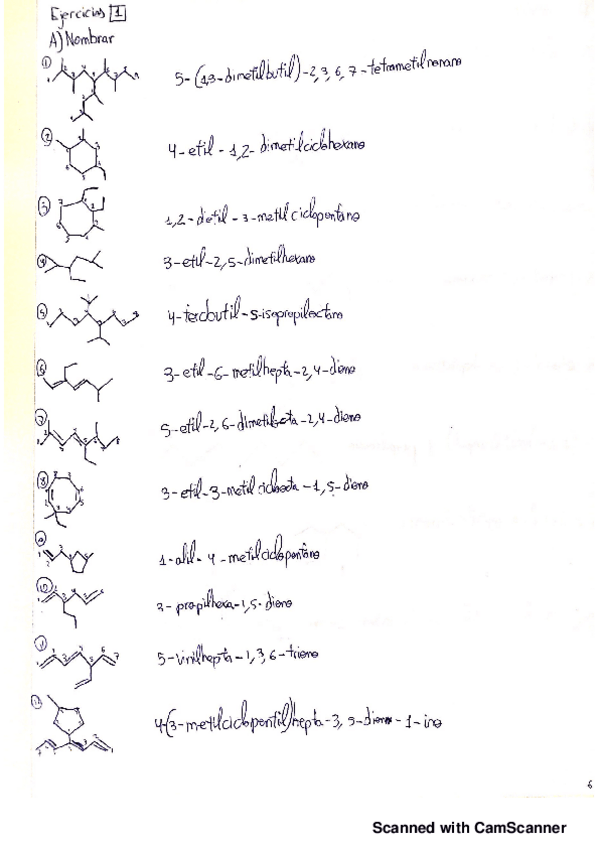 Ejercicios 1
A) Nombrar
1 5-(1,3-dimetilbutil)-2,3,6,7-tetrametilnonano
2 4-etil-1,2-dimetilciclohexano
3 1,2-dietil-3-metilciclopentano
4 3-etil-2,5-dimetilhexano
5 4-tercbutil-5-isopropiloctano
6 3-etil-6-metilhepta-2,4-dieno
7 5-etil-2,6-dimetilocta-2,4-dieno
8 3-etil-3-metilcicloocta-1,5-dieno
9 1-alil-4-metilciclopentano
10 3-propilhexa-1,5-dieno
11 5-vinilhepta-1,3,6-trieno
12 4-(3-metilciclopentil)hepta-3,5-dieno-1-ino
6
Scanned with CamScanner